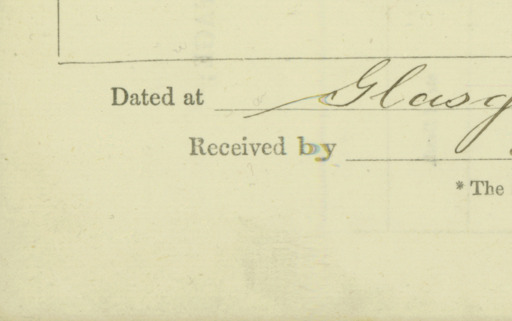 Dated at Glasg
Received by
* The